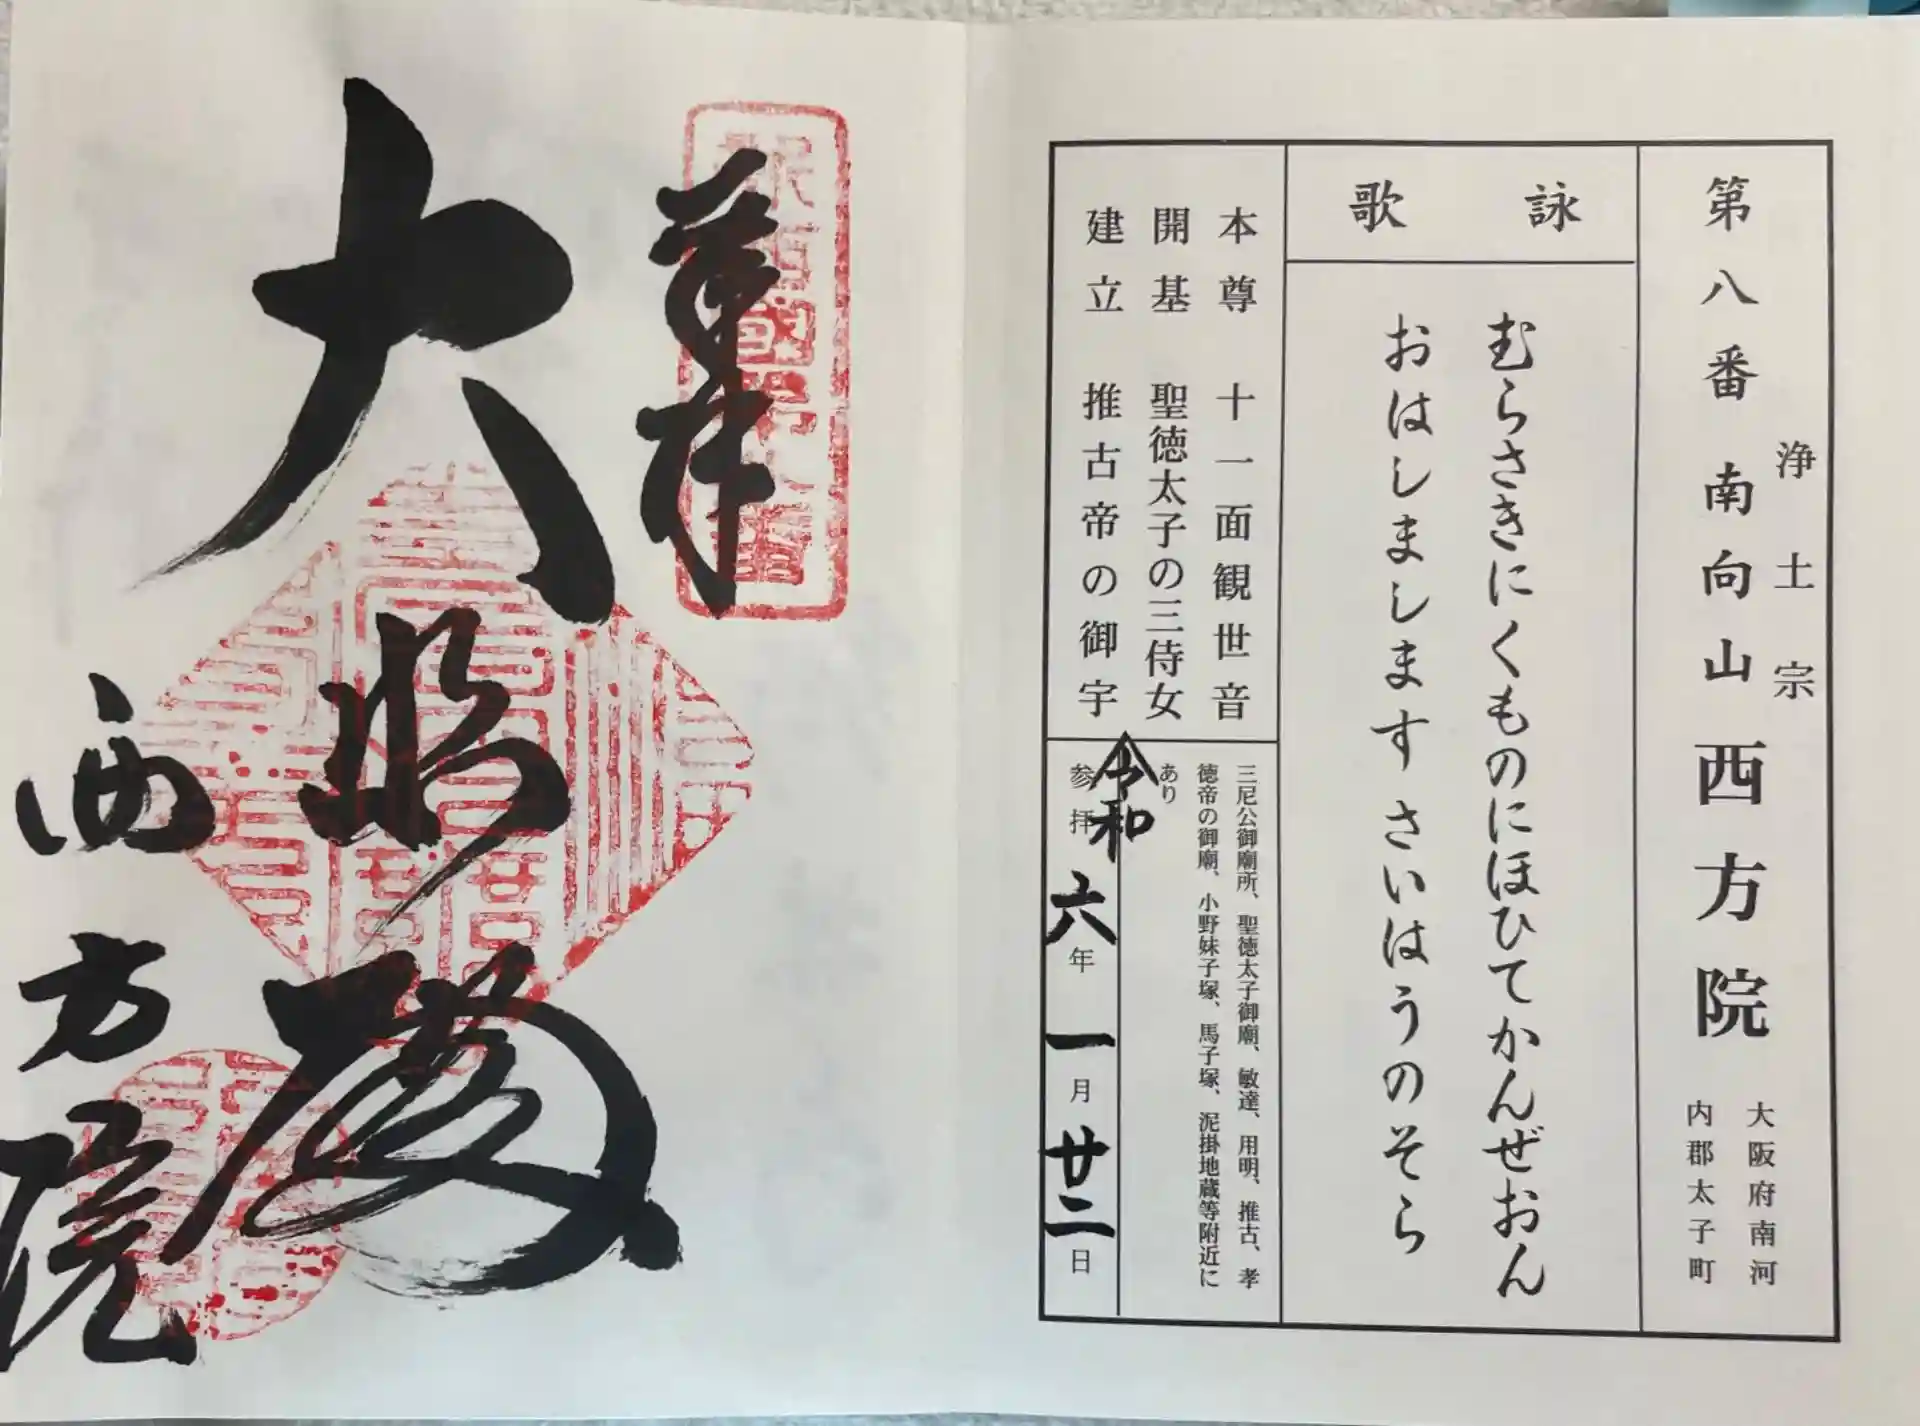 第八番 南向山 西方院
浄土宗
大阪府南河
内郡太子町
詠歌
むらさきにくものにほひてかんぜおん
おはしましますさいはうのそら
本尊 十一面観世音
開基 聖徳太子の三侍女
建立 推古帝の御宇
三尼公御廟所、聖徳太子御廟、敏達、用明、推古、孝
徳帝の御廟、小野妹子塚、馬子塚、泥掛地蔵等附近に
あり
令和
参拝 六年 一月 廿二日
奉拝
大悲殿
西方院